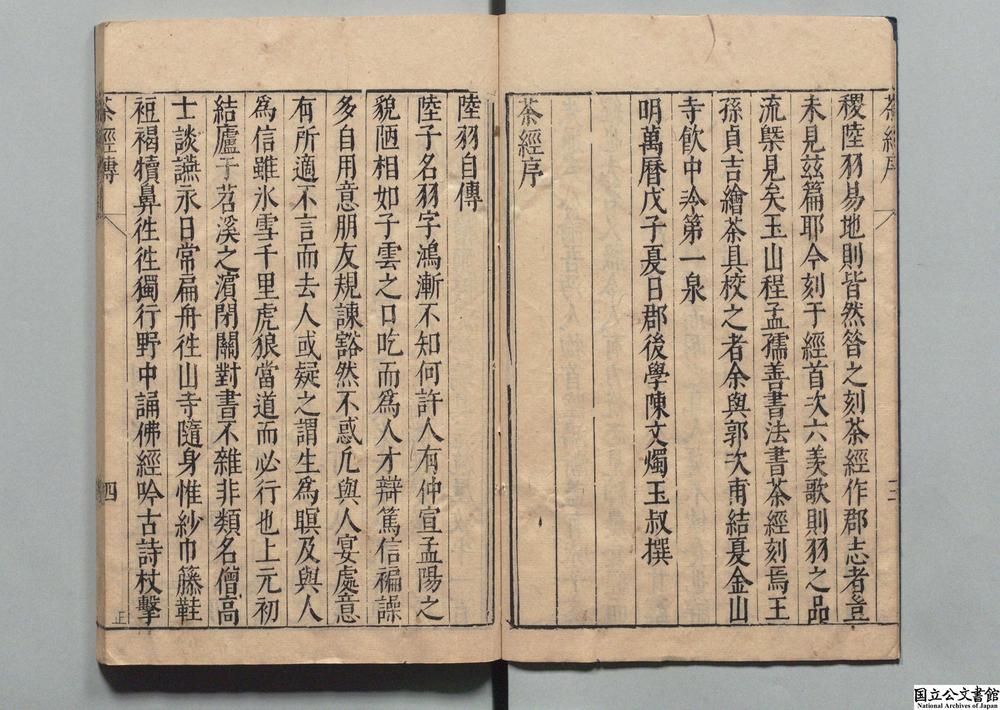 茶經序
三
稷陸羽易地則皆然昝之刻茶經作郡志者豈
未見茲篇耶今刻于經首次六羨歌則羽之品
流槩見矣玉山程孟孺善書法書茶經刻焉王
孫貞吉繪茶具校之者余與郭次甫結夏金山
寺飲中泠第一泉
明萬曆戊子夏日郡後學陳文燭玉叔撰
茶經序
陸羽自傳
陸子名羽字鴻漸不知何許人有仲宣孟陽之
貌陋相如子雲之口吃而為人才辯篤信褊譟
多自用意朋友規諫豁然不惑凢與人宴處意
有所適不言而去人或疑之謂生為瞋及與人
為信雖氷雪千里虎狼當道而必行也上元初
結廬于苕溪之濵閉關對書不雜非類名僧高
士談讌永日常扁舟徃山寺隨身惟紗巾籐鞋
裋褐犢鼻徃徃獨行野中誦佛經吟古詩杖擊
茶經傳
四
正
国立公文書館
National Archives of Japan